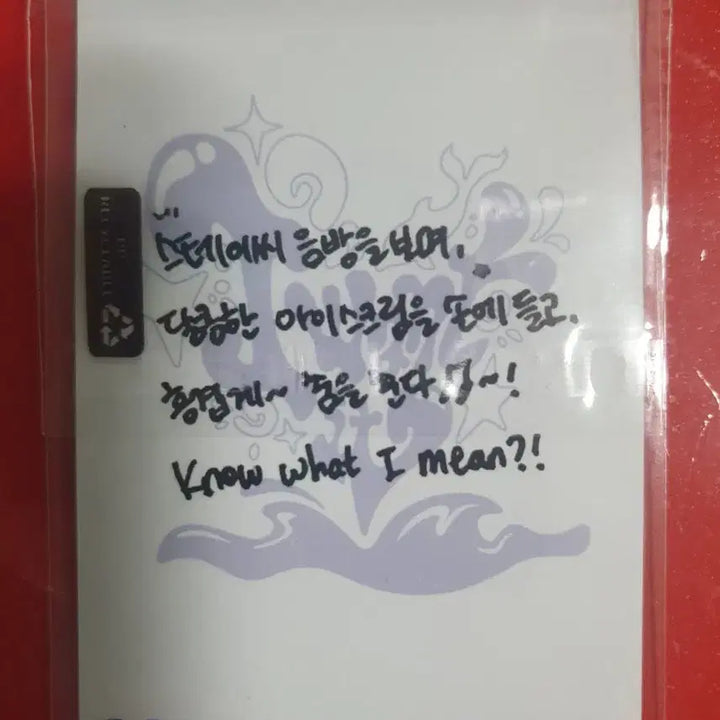 스테이씨 음방을 보며,
달콤한 아이스크림을 손에 들고,
흥겹게~ 춤을 춘다,
Know what I mean?!
RECYCLABLE